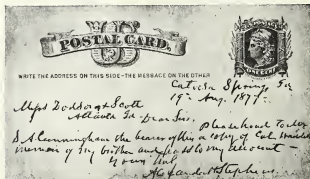 US
POSTAL CARD.
ONE CENT
WRITE THE ADDRESS ON THIS SIDE - THE MESSAGE ON THE OTHER
Catoosa Springs Ga
19th Aug. 1877.
Messrs Dodson & Scott
Atlanta Ga. Dear Sirs, Please hand to Mr
S A Cunningham the bearer of this a copy of Col
memoir of my brother and pass to my account —
Yours truly,
Alexander H Stephens